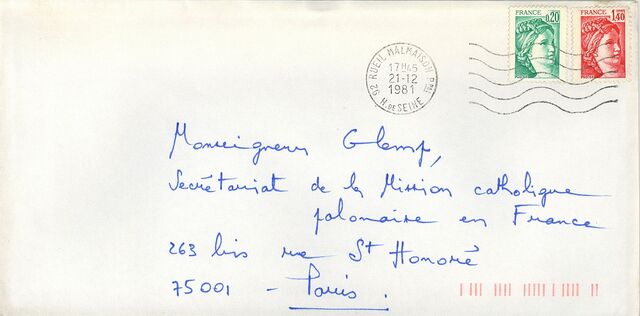 FRANCE 0,20
FRANCE 1,40
92 RUEIL MALMAISON PPAL
17H45
21-12
1981
H. DE SEINE
Monseigneur Glemp,
Secrétariat de la Mission catholique
polonaise en France
263 bis rue St Honoré
75001 - Paris.